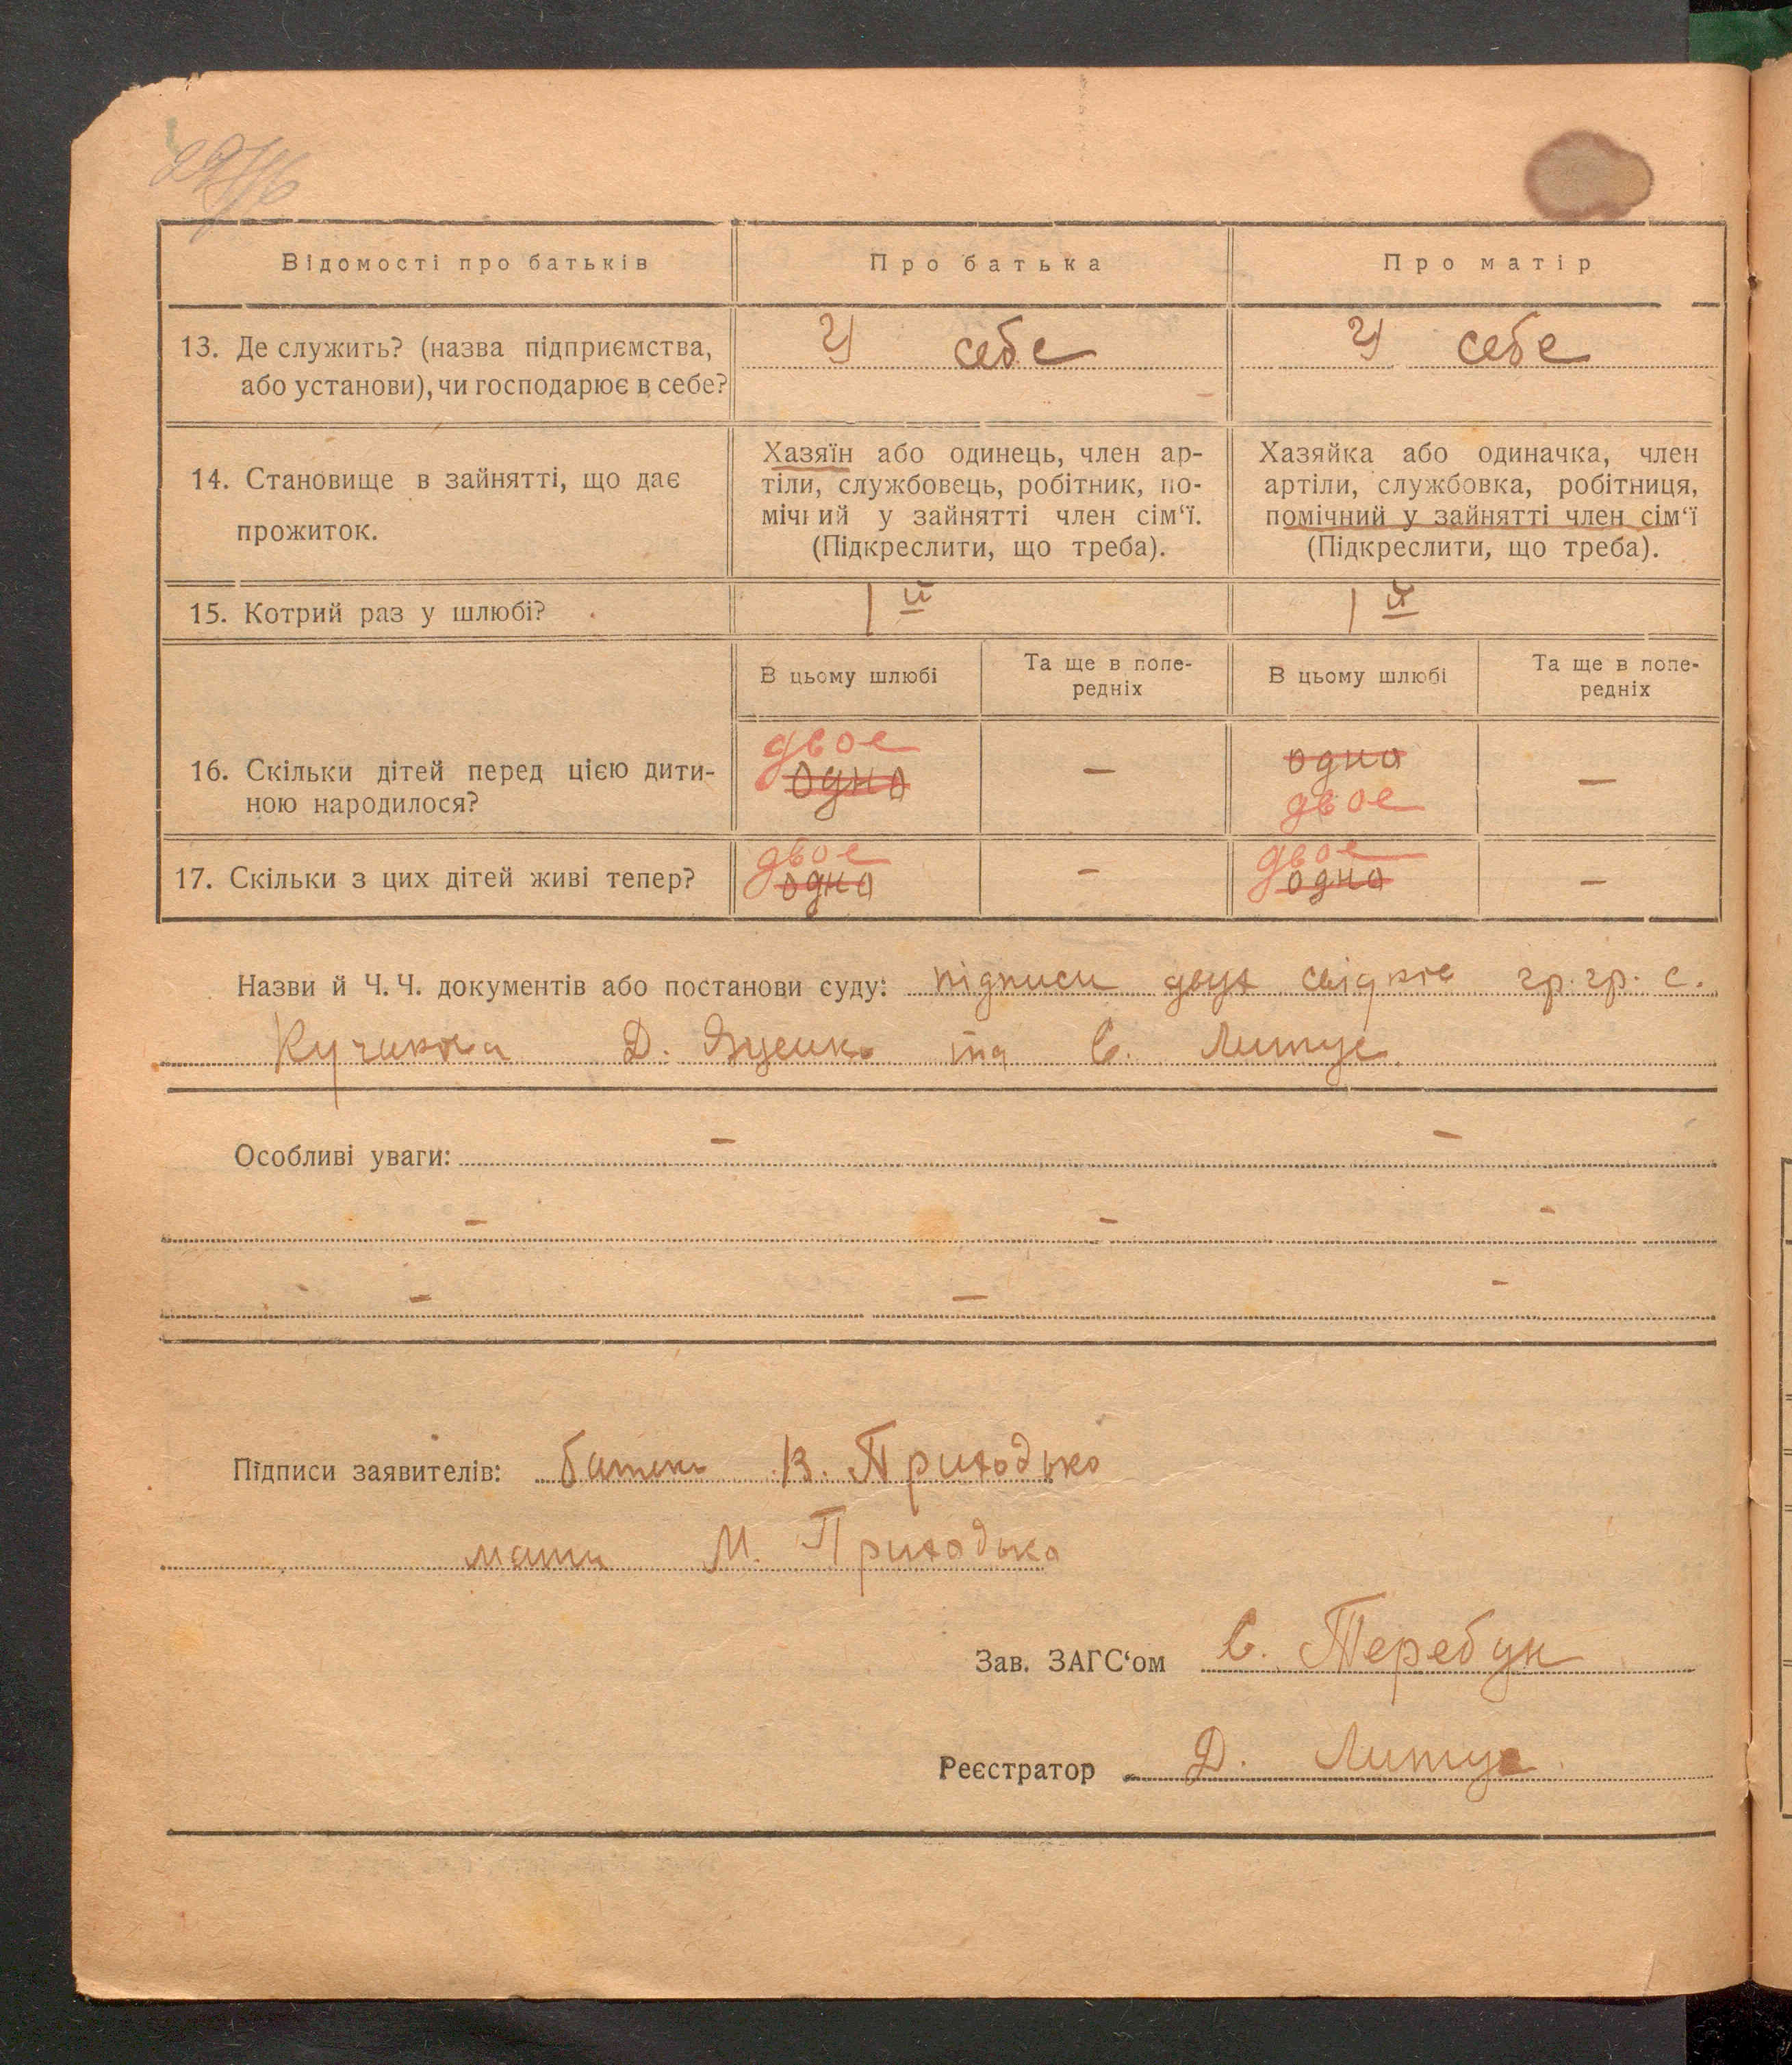 Відомості про батьків
Про батька
Про матір
13. Де служить? (назва підприємства,
або установи), чи господарює в себе?
У себе
У себе
14. Становище в зайнятті, що дає
прожиток.
Хазяїн або одинець, член ар-
тіли, службовець, робітник, по-
мічний у зайнятті член сім‘ї.
(Підкреслити, що треба).
Хазяйка або одиначка, член
артіли, службовка, робітниця,
помічний у зайнятті член сім‘ї
(Підкреслити, що треба).
15. Котрий раз у шлюбі?
1й
1й
В цьому шлюбі
Та ще в попе-
редніх
В цьому шлюбі
Та ще в попе-
редніх
16. Скільки дітей перед цією дити-
ною народилося?
двое
одно
—
одно
двое
—
17. Скільки з цих дітей живі тепер?
двое
одно
—
двое
одно
—
Назви й Ч. Ч. документів або постанови суду: підписи двух свідків гр. гр. с.
Д. Яценко та Є. Литус
Особливі уваги: — —
— — —
— — —
Підписи заявителів: батько В. Приходько
мати М. Приходька
Зав. ЗАГС‘ом Є. Теребун
Реєстратор Д. Литус